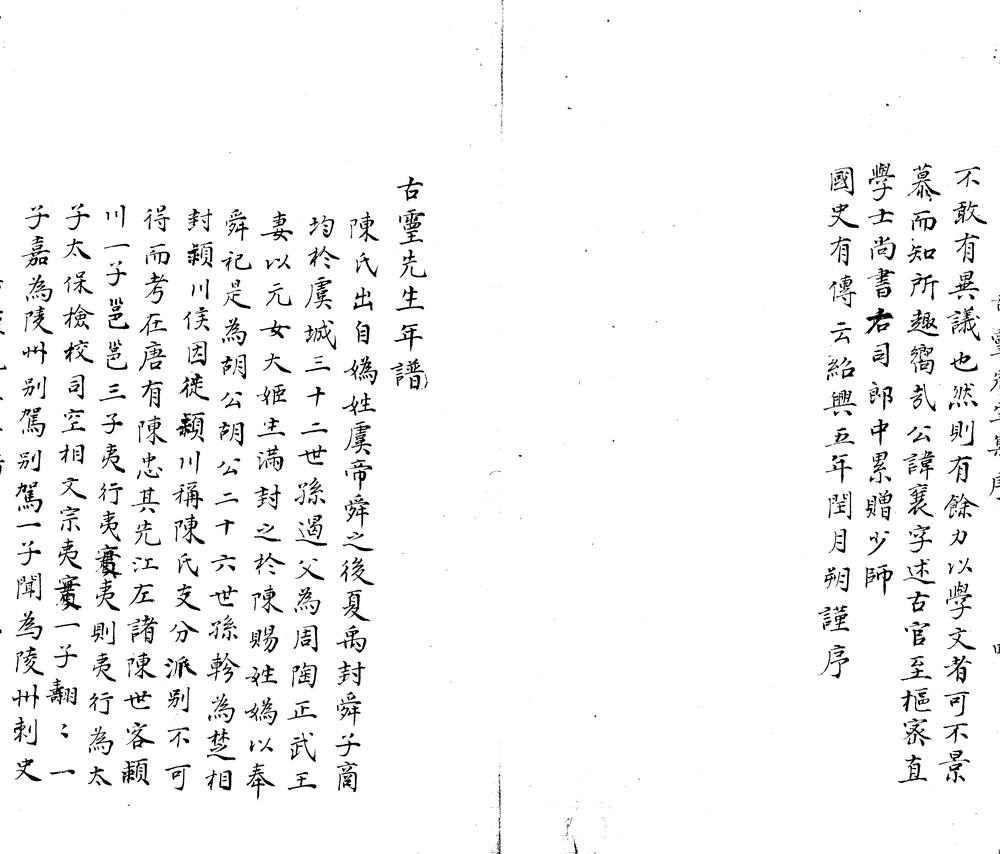 不敢有異議也然則有餘力以學文者可不景
慕而知所趣嚮哉公諱襄字述古官至樞宻直
學士尚書右司郎中累贈少師
國史有傳云紹興五年閏月朔謹序
古靈先生年譜
陳氏出自媯姓虞帝舜之後夏禹封舜子商
均於虞城三十二世孫遏父為周陶正武王
妻以元女大姬生滿封之於陳賜姓媯以奉
舜祀是為胡公胡公二十六世孫軫為楚相
封潁川侯因徙潁川稱陳氏支分派别不可
得而考在唐有陳忠其先江左諸陳世客潁
川一子邕邕三子夷行夷賓夷則夷行為太
子太保檢校司空相文宗夷賓一子翿〻一
子嘉為陵州别駕别駕一子聞為陵州刺史